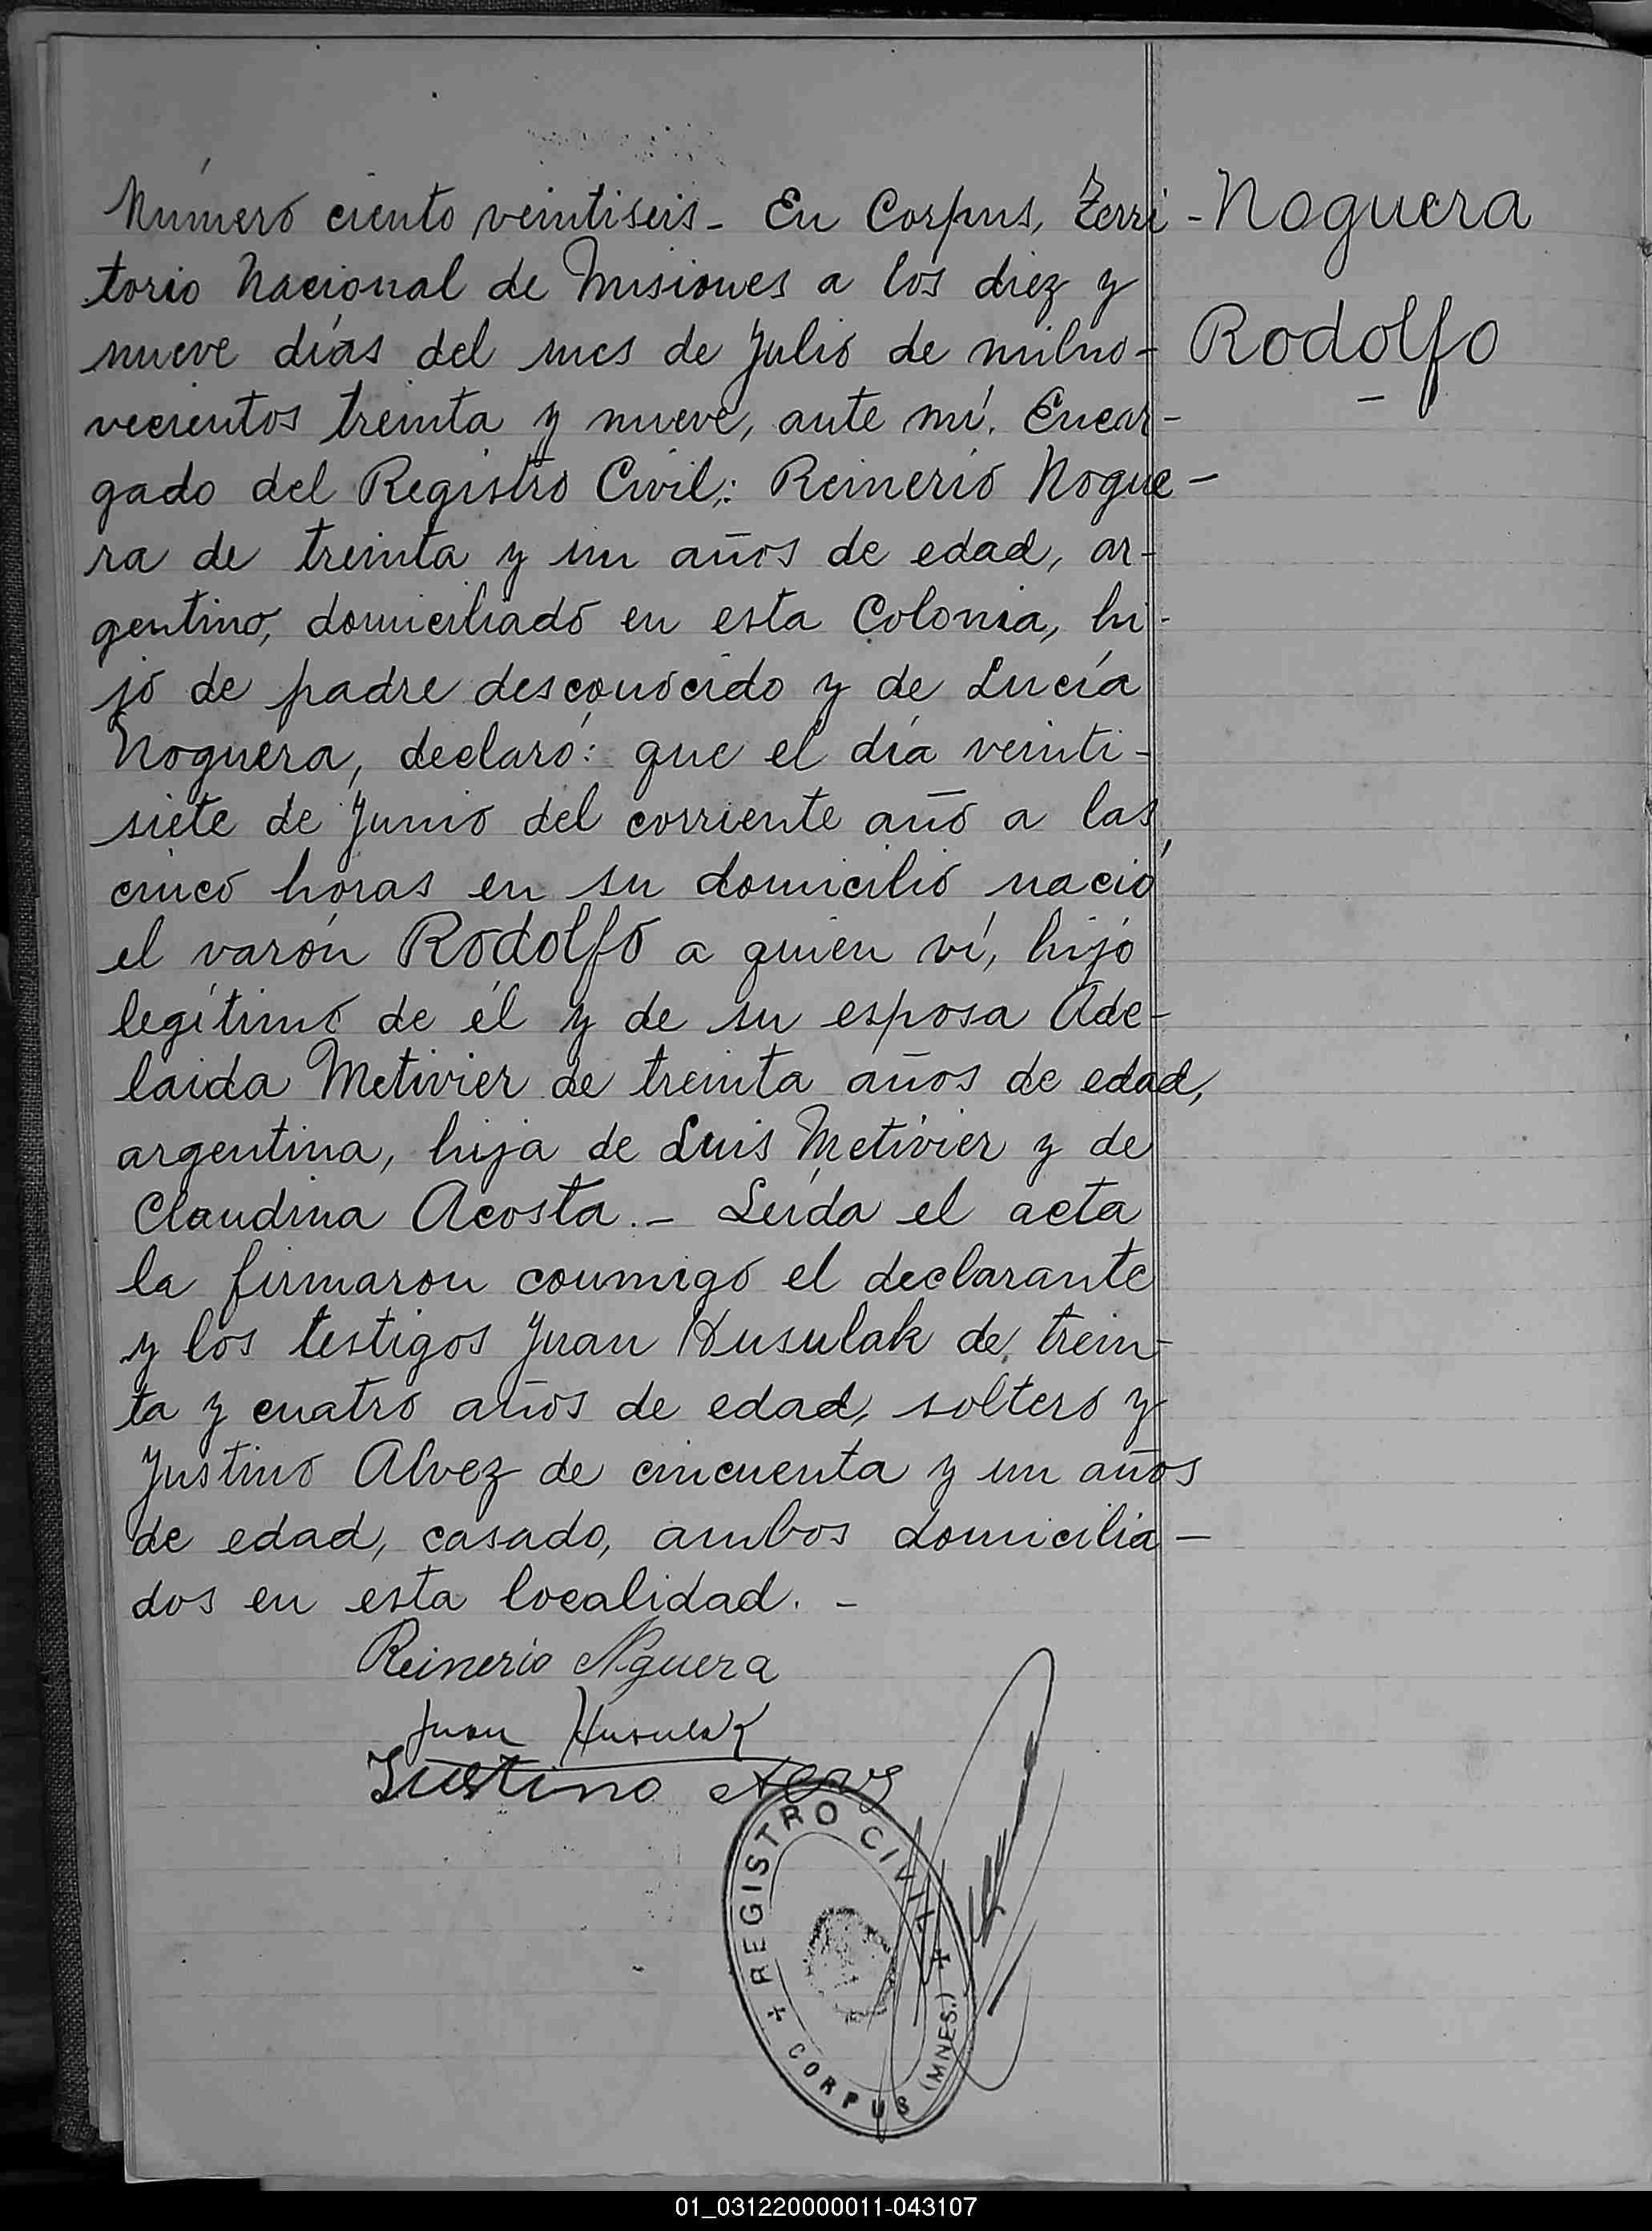 Número ciento veintiseis - En Corpus, Terri-
torio Nacional de Misiones a los diez y
nueve días del mes de Julio de milno-
vecientos treinta y nueve, ante mí. Encar-
gado del Registro Civil: Reinerio Nogue-
ra de treinta y un años de edad, ar-
gentino, domiciliado en esta Colonia, hi-
jo de padre desconocido y de Lucía
Noguera, declaró: que el día veinti-
siete de Junio del corriente año a las
cinco horas en su domicilio nació
el varón Rodolfo a quien ví, hijo
legítimo de él y de su esposa Ade-
laida Metivier de treinta años de edad,
argentina, hija de Luis Metivier y de
Claudina Acosta.- Leída el acta
la firmaron conmigo el declarante
y los testigos Juan Husulak de trein-
ta y cuatro años de edad, soltero y
Justino Alvez de cincuenta y un años
de edad, casado, ambos domicilia-
dos en esta localidad. -
Reinerio Noguera
Juan Husulak
Justino Alvez
Noguera
Rodolfo
REGISTRO CIVIL
CORPUS (MNES.)
01_031220000011-043107